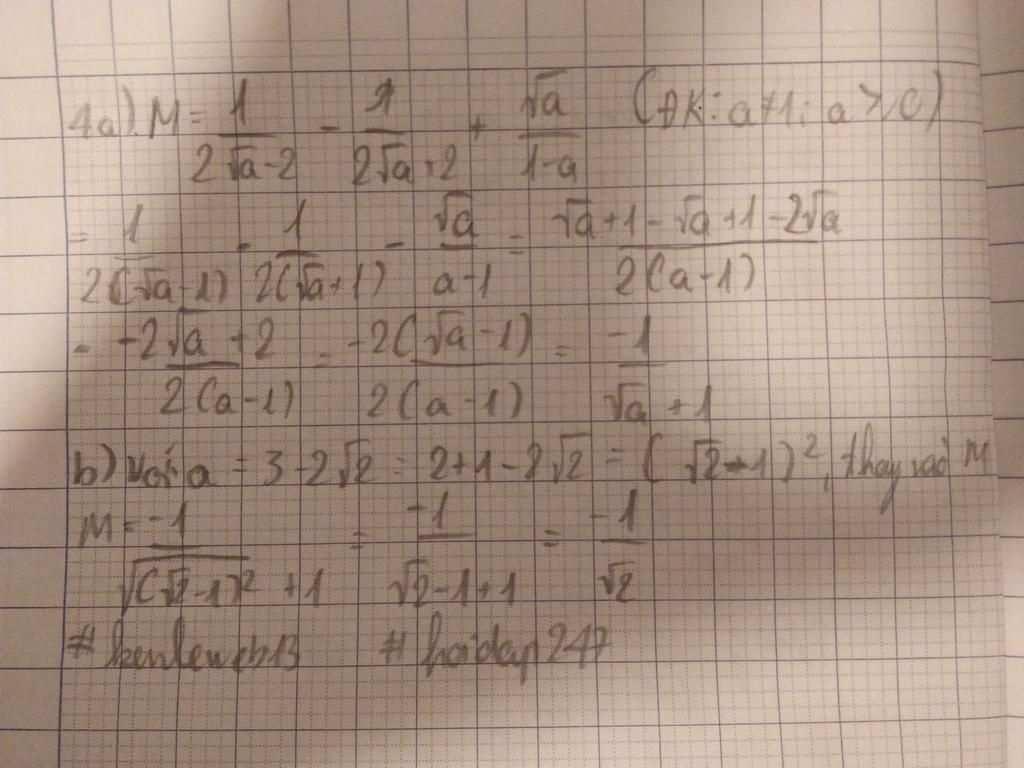 4a) M = 1/(2√a-2) - 1/(2√a+2) + √a/(1-a) (ĐK: a≠1; a≥0)
= 1/(2(√a-1)) - 1/(2(√a+1)) - √a/(a-1) = (√a+1-√a+1-2√a)/(2(a-1))
= (-2√a+2)/(2(a-1)) = -2(√a-1)/(2(a-1)) = -1/(√a+1)
b) với a = 3-2√2 = 2+1-2√2 = (√2-1)², thay vào M
M = -1/(√(√2-1)²+1) = -1/(√2-1+1) = -1/√2
# hoidap247